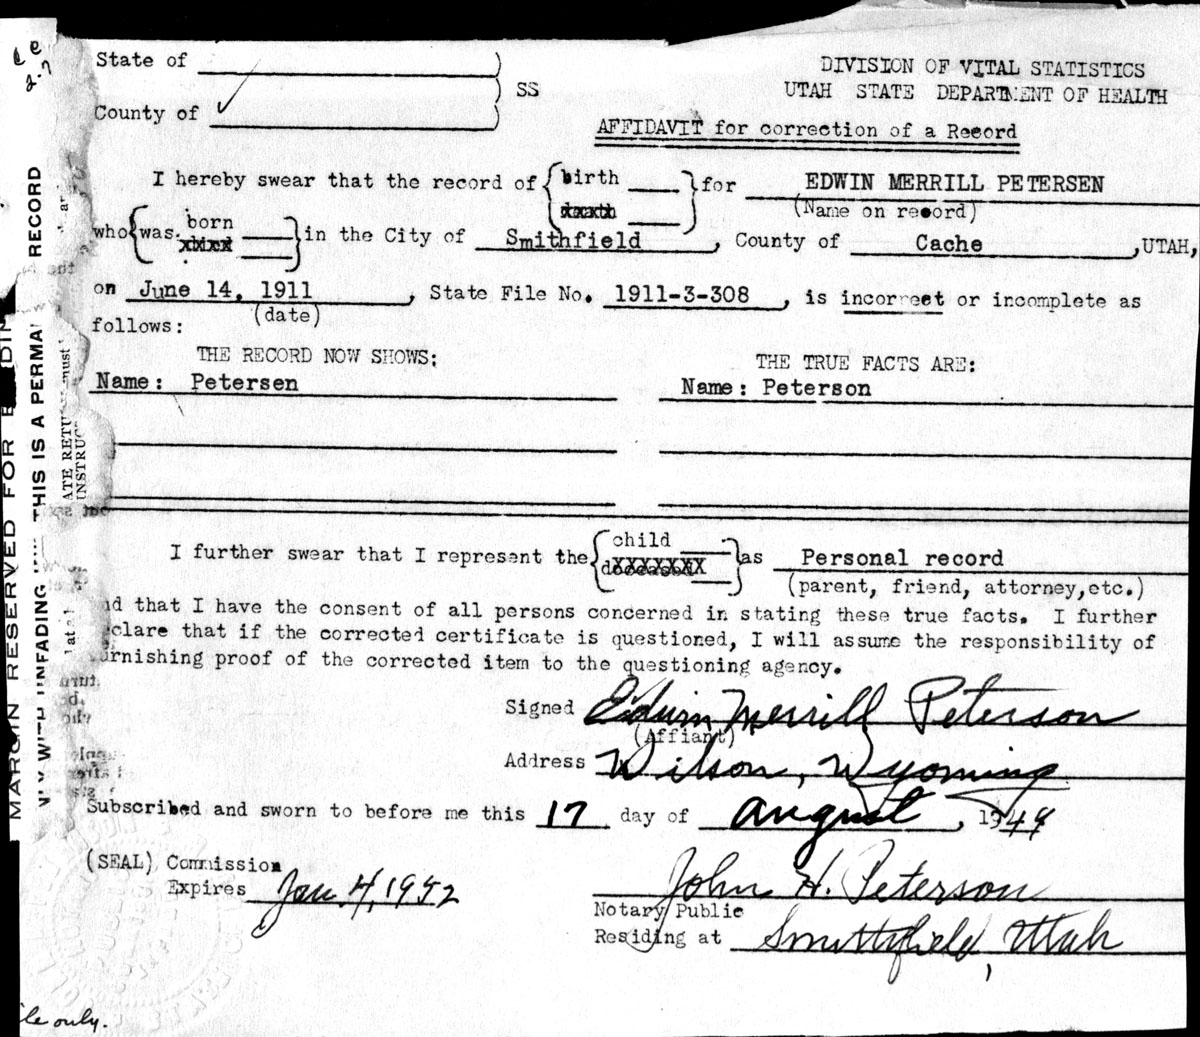 State of
DIVISION OF VITAL STATISTICS
SS
UTAH STATE DEPARTMENT OF HEALTH
County of
AFFIDAVIT for correction of a Record
I hereby swear that the record of birth for EDWIN MERRILL PETERSEN
xxxxx (Name on record)
who was born in the City of Smithfield, County of Cache, UTAH,
on June 14, 1911, State File No. 1911-3-308, is incorrect or incomplete as
(date)
follows:
THE RECORD NOW SHOWS: THE TRUE FACTS ARE:
Name: Petersen Name: Peterson
I further swear that I represent the child as Personal record
deceased (parent, friend, attorney, etc.)
nd that I have the consent of all persons concerned in stating these true facts. I further
clare that if the corrected certificate is questioned, I will assume the responsibility of
urnishing proof of the corrected item to the questioning agency.
Signed Edwin Merrill Peterson
(Affiant)
Address Wilson, Wyoming
Subscribed and sworn to before me this 17 day of August, 1949
(SEAL) Commission
Expires Jan. 4, 1952
John H. Peterson
Notary Public
Residing at Smithfield, Utah
le only.
MARGIN RESERVED FOR B DIN
LY WITH UNFADING THIS IS A PERMA RECORD
ATE RETU must
INSTRUC